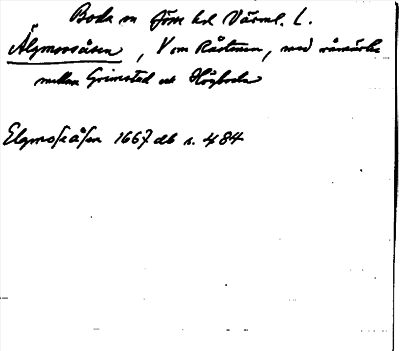 Boda sn Jösse hd Värml. L.
Älgmossåsen, V om Råstenen, med råmärke
mellan Grimstad och Högboda
Elgmossåsen 1667 db s. 484